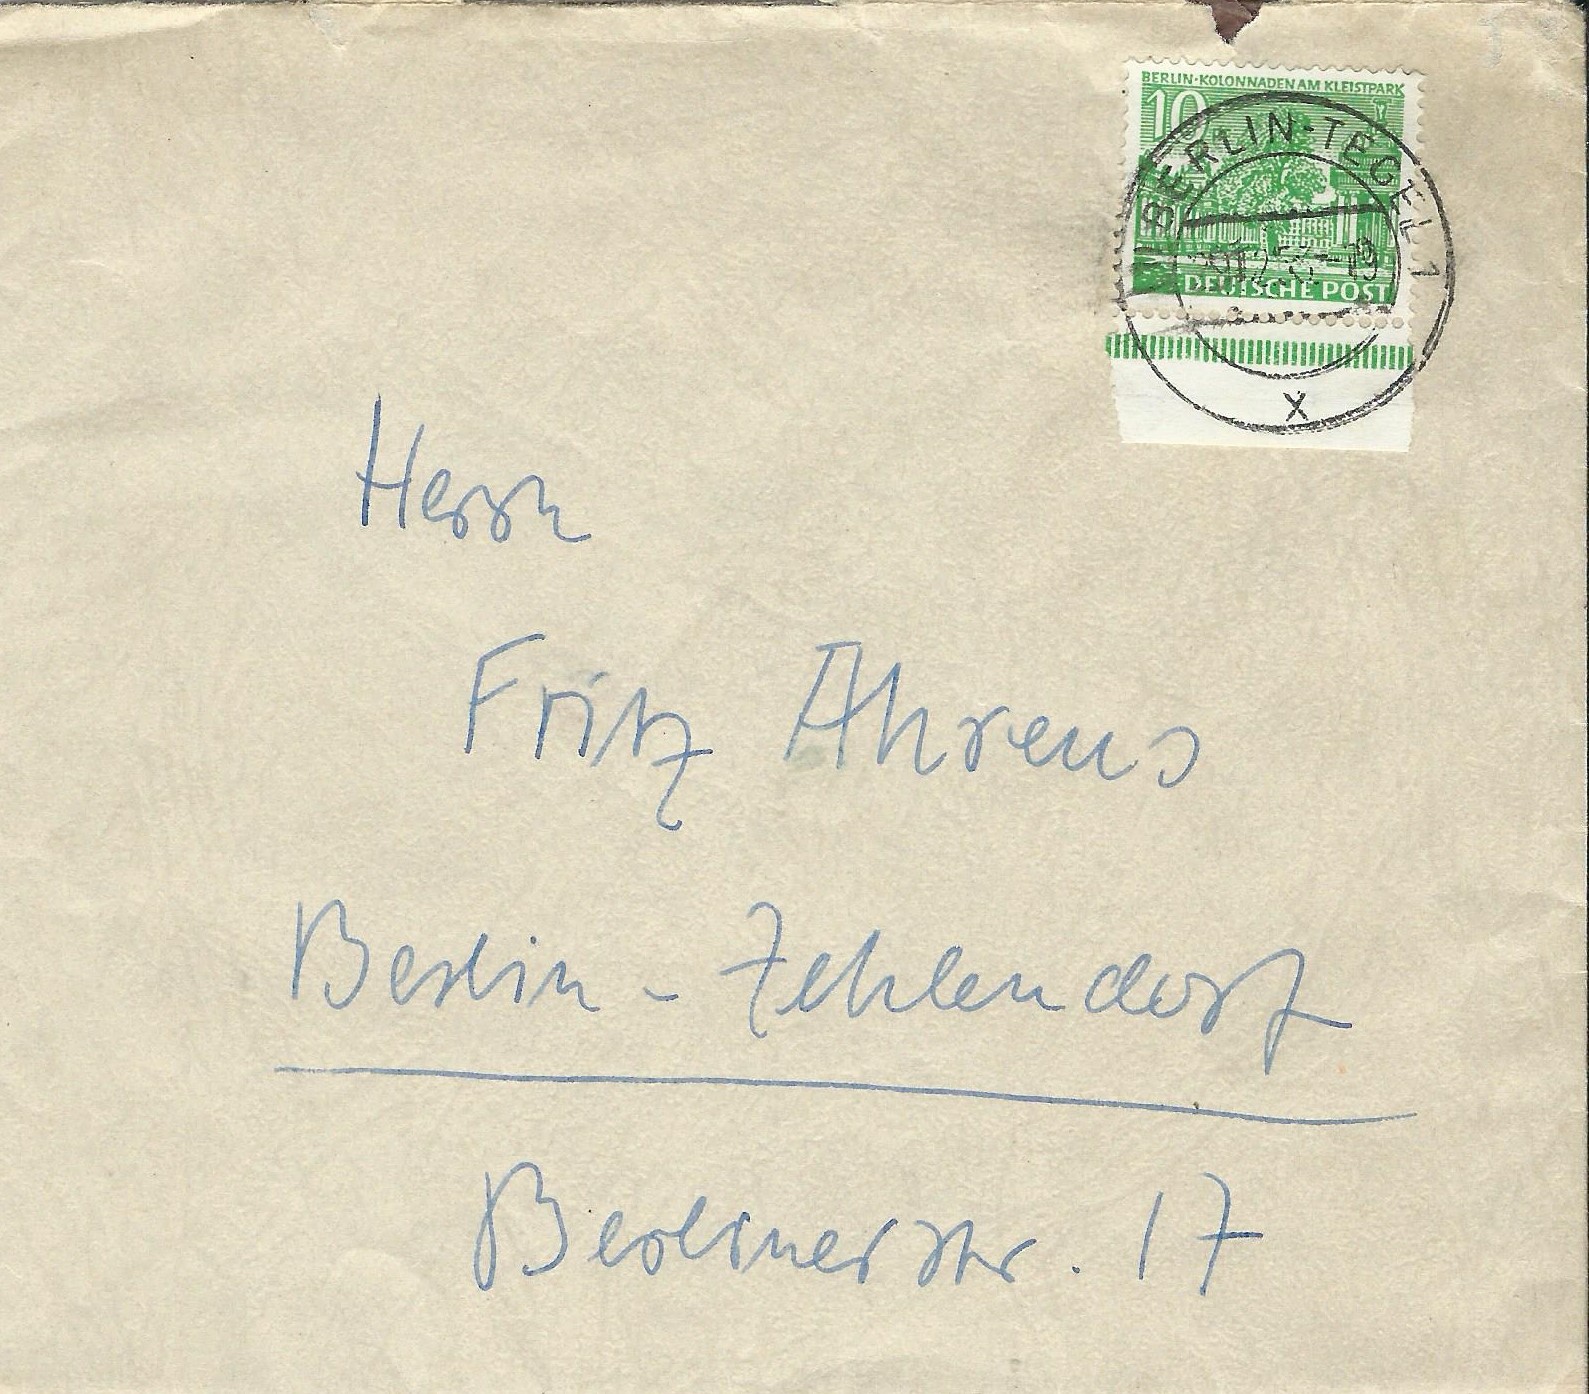 BERLIN·KOLONNADEN AM KLEISTPARK
10
DEUTSCHE POST
BERLIN-TEGEL 1
x
Herrn
Fritz Ahrens
Berlin-Zehlendorf
Berlinerstr. 17